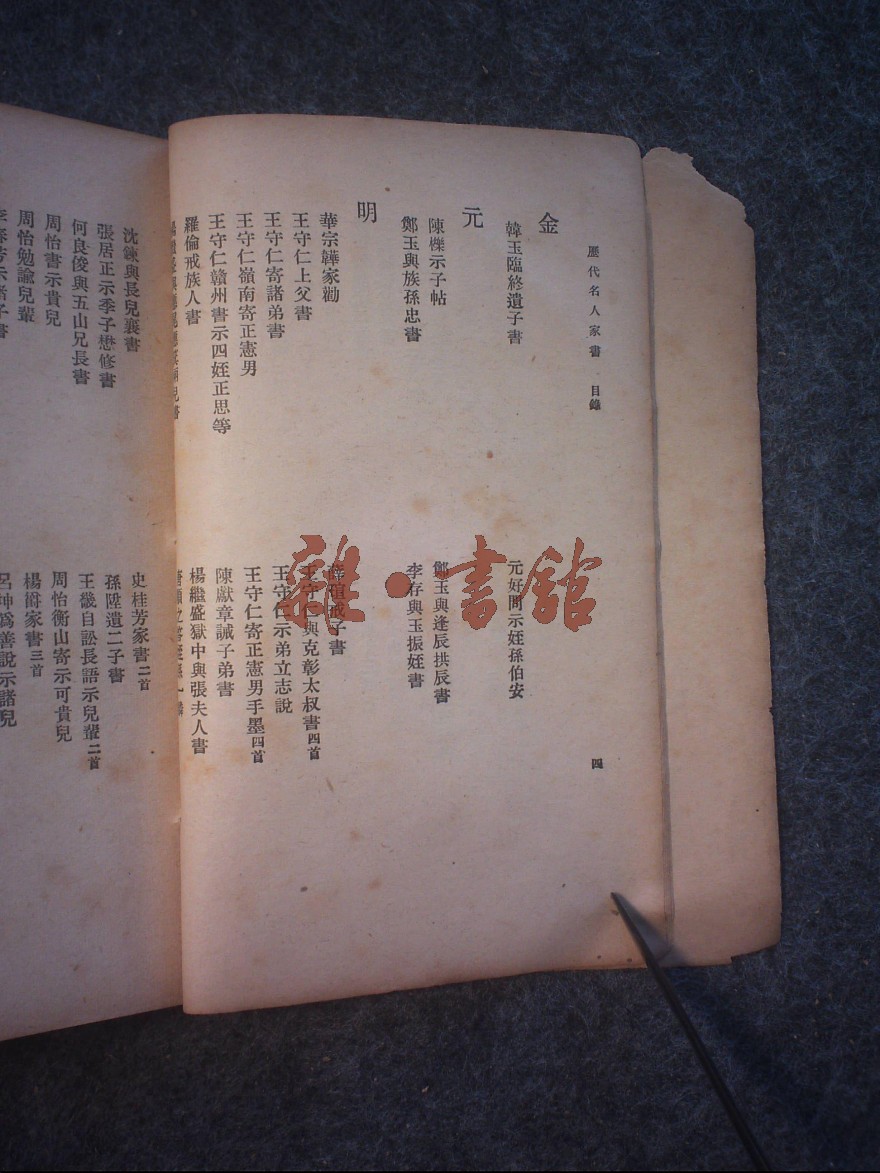 歷代名人家書 目錄 四
金
韓玉臨終遺子書
元好問示姪孫伯安
元
陳櫟示子帖
鄭玉與逢辰拱辰書
鄭玉與族孫忠書
李存與玉振姪書
明
華宗韡家勸
薛瑄戒子書
王守仁上父書
王守仁與克彰太叔書四首
王守仁寄諸弟書
王守仁示弟立志說
王守仁嶺南寄正憲男
王守仁寄正憲男手墨四首
王守仁贛州書示四姪正思等
陳獻章誡子弟書
羅倫戒族人書
楊繼盛獄中與張夫人書
沈鍊與長兒襄書
史桂芳家書二首
張居正示季子懋修書
孫陞遺二子書
何良俊與五山兄長書
王畿自訟長語示兒輩二首
周怡書示貴兒
周怡衡山寄示可貴兒
周怡勉諭兒輩
楊爵家書三首
呂坤爲善說示諸兒
雜·書館